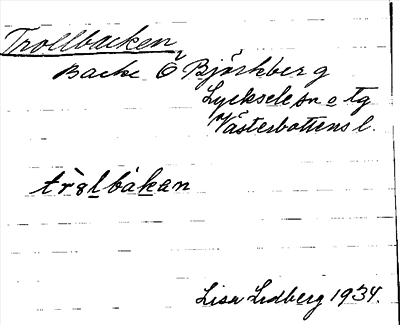 Trollbacken
Backe Ö Björkberg
Lycksele sn o tg
Västerbottens l.
Lisa Lidberg 1934.